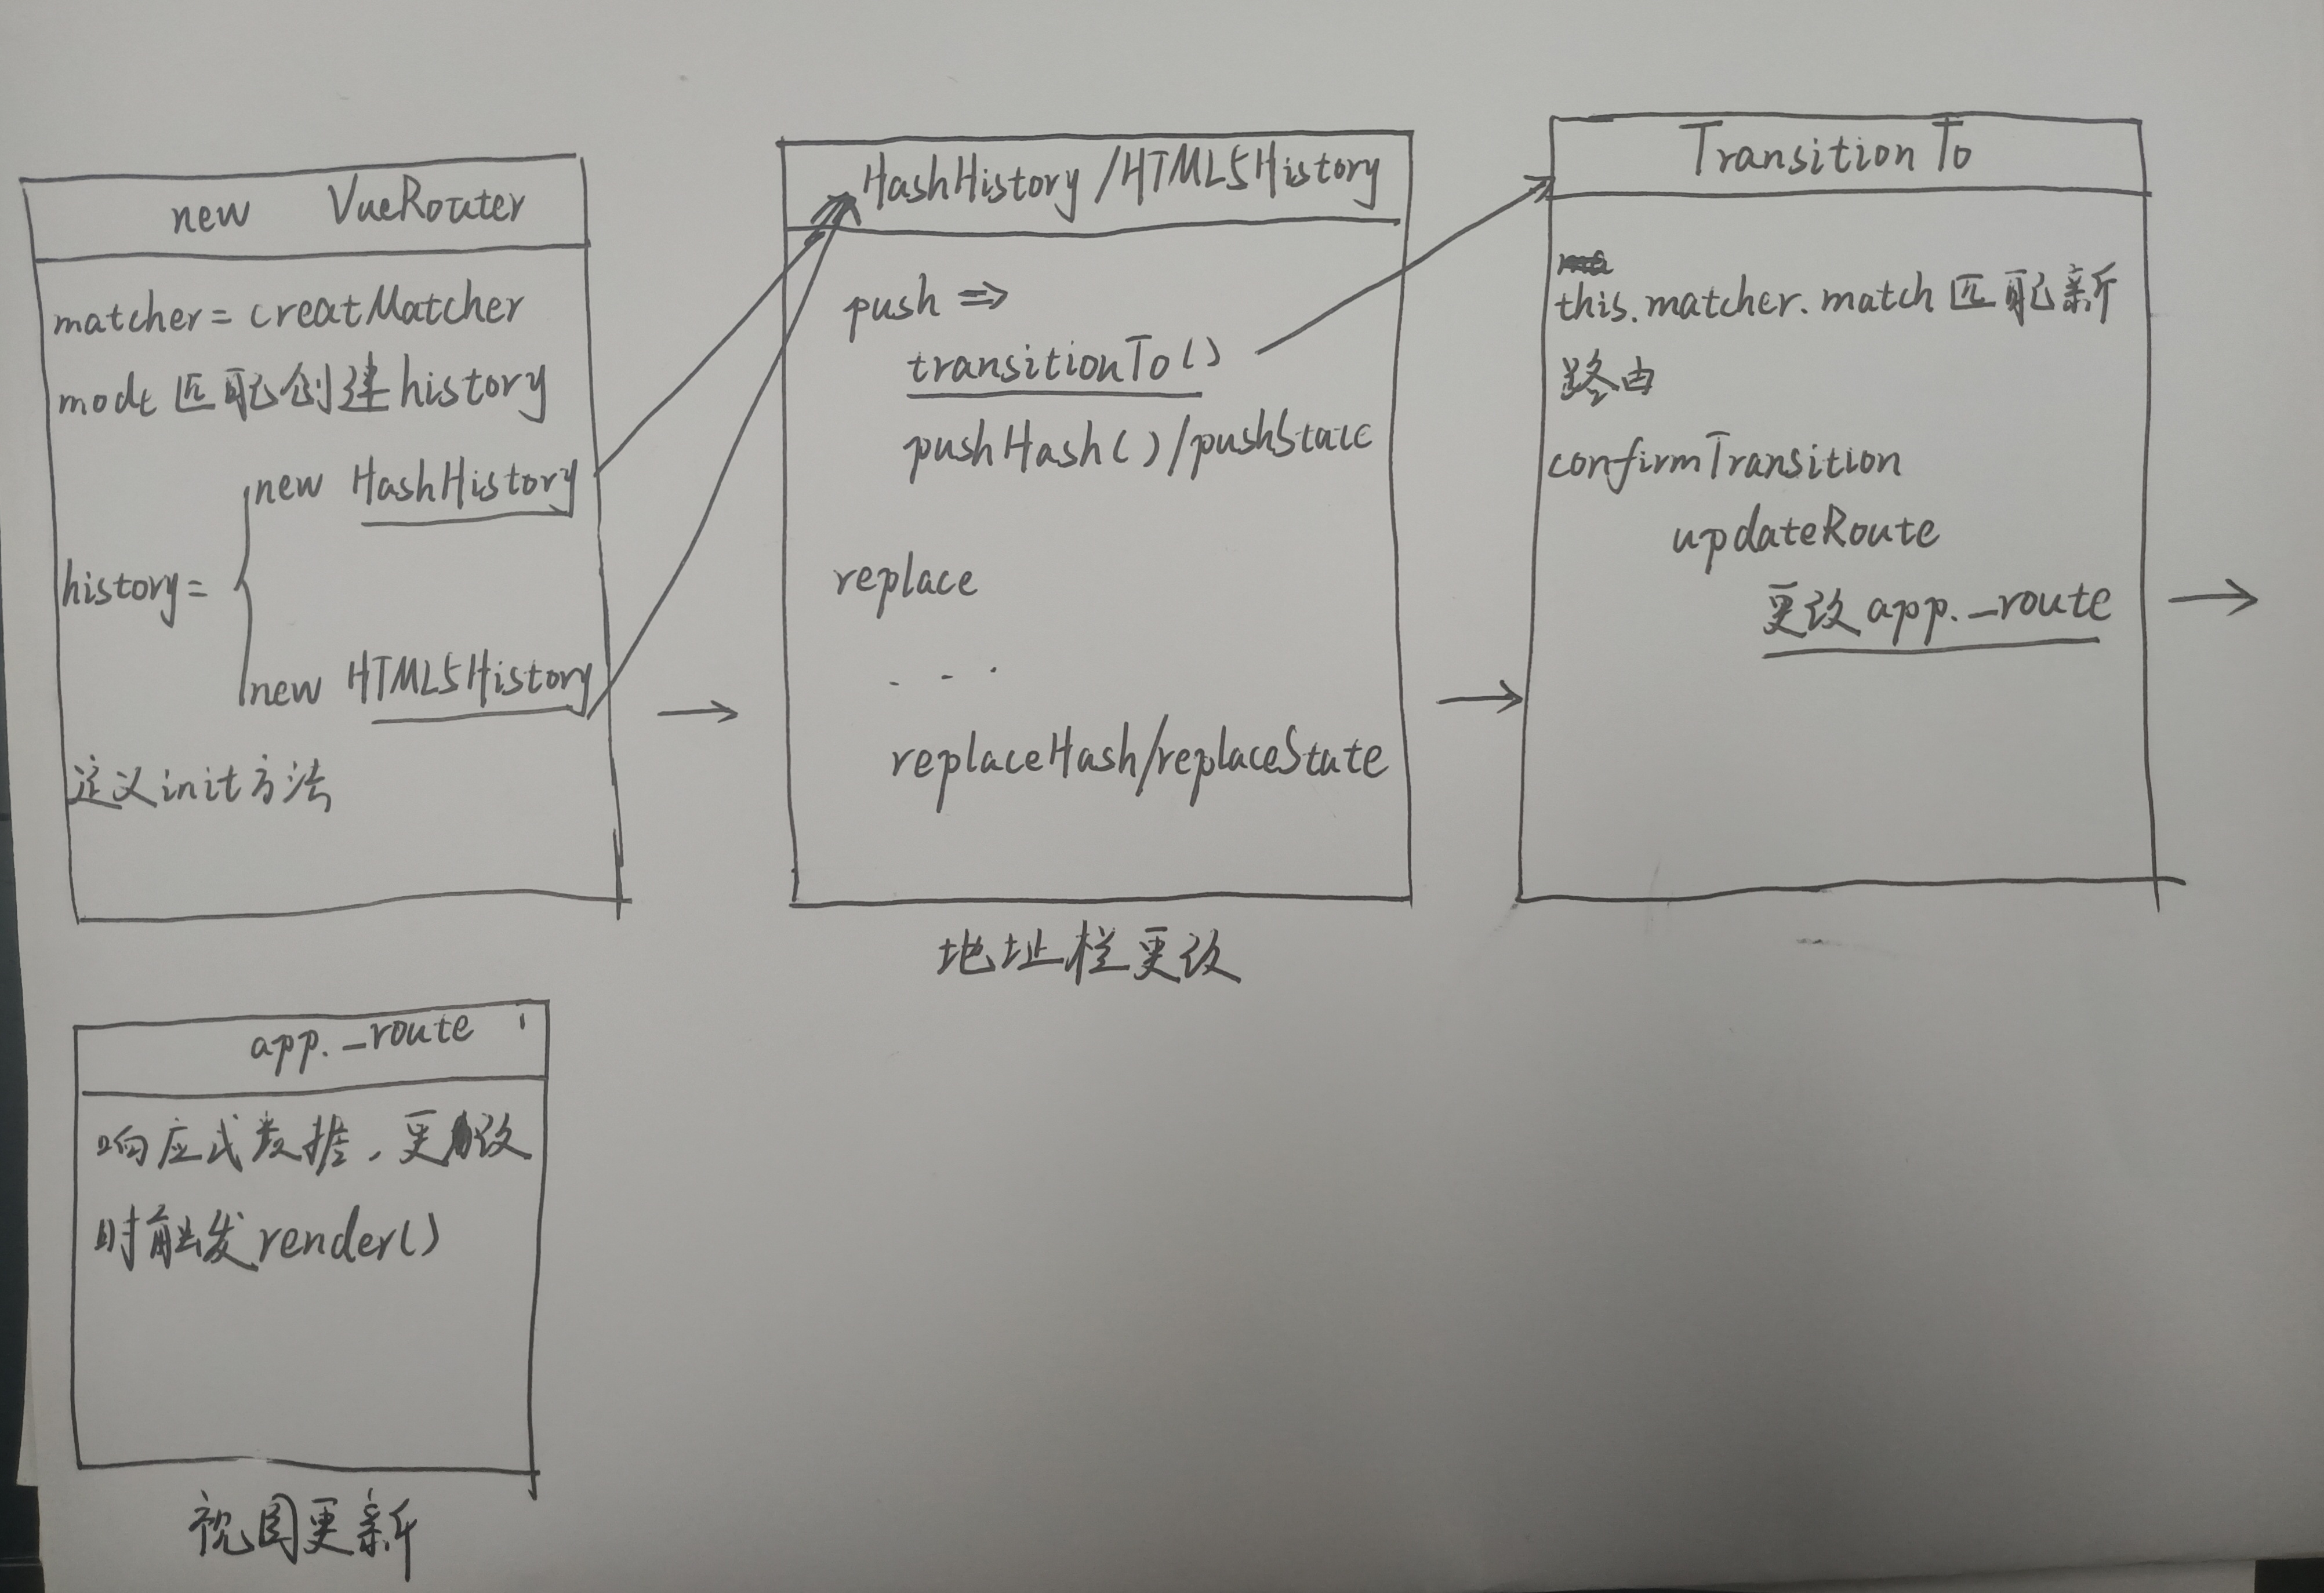 new VueRouter
matcher = creatMatcher
mode 匹配创建history
history =
new HashHistory
new HTML5History
定义init方法
HashHistory/HTML5History
push =>
transitionTo()
pushHash()/pushState
replace
. . .
replaceHash/replaceState
地址栏更改
TransitionTo
this.matcher.match 匹配新
路由
confirmTransition
updateRoute
更改app._route
app._route
响应式数据,更改
时触发render()
视图更新